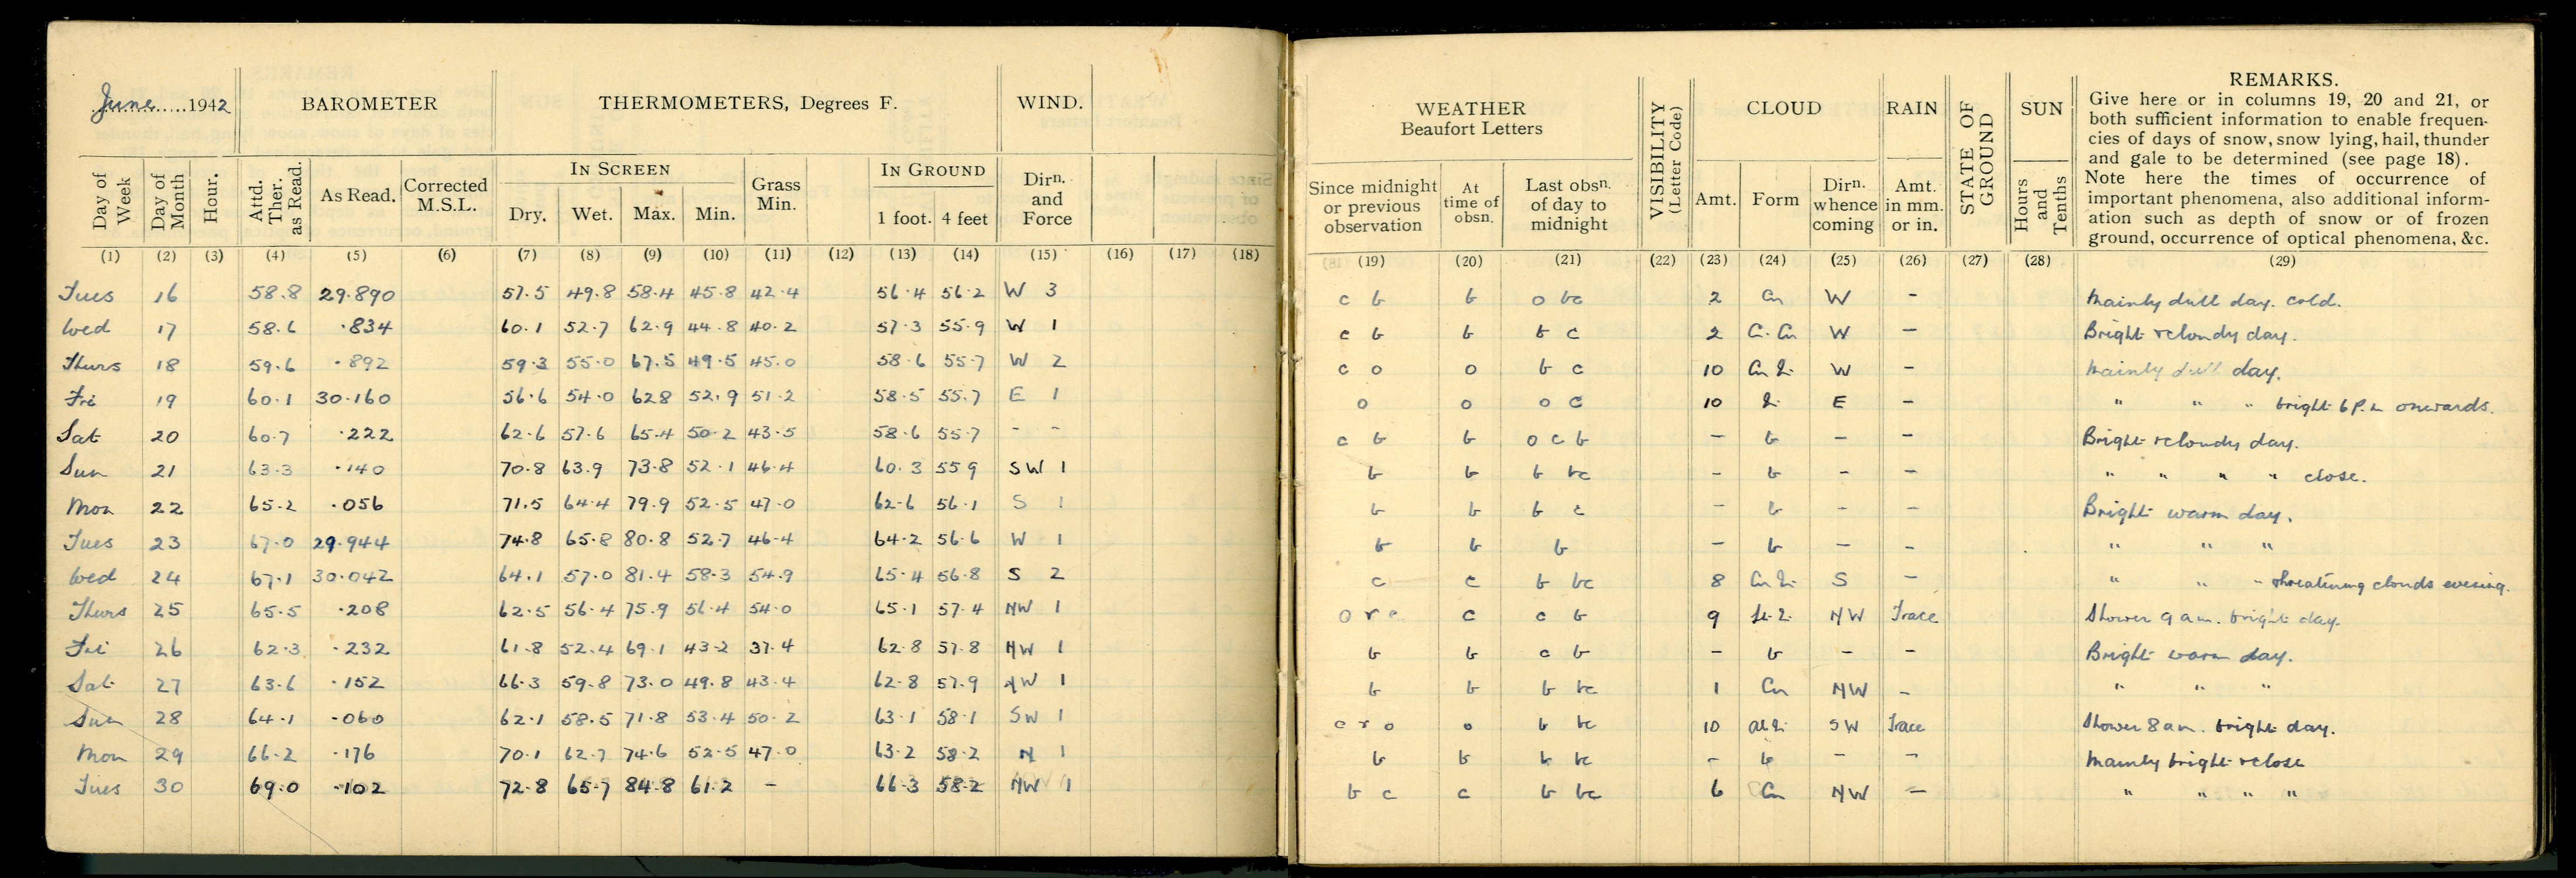 June 1942
BAROMETER
THERMOMETERS, Degrees F.
WIND.
Day of Week
Day of Month
Hour.
Attd. Ther. as Read.
As Read.
Corrected M.S.L.
IN SCREEN
Dry. Wet. Max. Min.
Grass Min.
IN GROUND
1 foot. 4 feet
Dirn. and Force
(1) (2) (3) (4) (5) (6) (7) (8) (9) (10) (11) (12) (13) (14) (15) (16) (17) (18)
Tues 16 58.8 29.890 57.5 49.8 58.4 45.8 42.4 56.4 56.2 W 3
Wed 17 58.6 .834 60.1 52.7 62.9 44.8 40.2 57.3 55.9 W 1
Thurs 18 59.6 .892 59.3 55.0 67.5 49.5 45.0 58.6 55.7 W 2
Fri 19 60.1 30.160 56.6 54.0 62.8 52.9 51.2 58.5 55.7 E 1
Sat 20 60.7 .222 62.6 57.6 65.4 50.2 43.5 58.6 55.7 - -
Sun 21 63.3 .140 70.8 63.9 73.8 52.1 46.4 60.3 55 9 SW 1
Mon 22 65.2 .056 71.5 64.4 79.9 52.5 47.0 62.6 56.1 S 1
Tues 23 67.0 29.944 74.8 65.8 80.8 52.7 46.4 64.2 56.6 W 1
Wed 24 67.1 30.042 64.1 57.0 81.4 58.3 54.9 65.4 56.8 S 2
Thurs 25 65.5 .208 62.5 56.4 75.9 56.4 54.0 65.1 57.4 NW 1
Fri 26 62.3 .232 61.8 52.4 69.1 43.2 37.4 62.8 57.8 NW 1
Sat 27 63.6 .152 66.3 59.8 73.0 49.8 43.4 62.8 57.9 NW 1
Sun 28 64.1 .060 62.1 58.5 71.8 53.4 50.2 63.1 58.1 SW 1
Mon 29 66.2 .176 70.1 62.7 74.6 52.5 47.0 63.2 58.2 N 1
Tues 30 69.0 .102 72.8 65.7 84.8 61.2 - 66.3 58.2 NW 1
WEATHER
Beaufort Letters
Since midnight or previous observation
At time of obsn.
Last obsn. of day to midnight
VISIBILITY (Letter Code)
CLOUD
Amt. Form
Dirn. whence coming
RAIN
Amt. in mm. or in.
STATE OF GROUND
SUN
Hours and Tenths
REMARKS.
Give here or in columns 19, 20 and 21, or
both sufficient information to enable frequen-
cies of days of snow, snow lying, hail, thunder
and gale to be determined (see page 18).
Note here the times of occurrence of
important phenomena, also additional inform-
ation such as depth of snow or of frozen
ground, occurrence of optical phenomena, &c.
(19) (20) (21) (22) (23) (24) (25) (26) (27) (28) (29)
c b b o bc 2 Cu W - Mainly dull day. cold.
c b b b c 2 Ci. Cu W - Bright & cloudy day.
c o o b c 10 Cu St. W - Mainly dull day.
o o o c 10 St. E - " " " bright 6 P.m onwards.
c b b o c b - b - - Bright & cloudy day.
b b b bc - b - - " " " " close.
b b b c - b - - Bright warm day.
b b b - b - - " " "
c c b bc 8 Cu St. S - " " " threatening clouds evening.
o r c c c b 9 NW Trace Shower 9 am. bright day.
b b c b - b - - Bright warm day.
b b b bc 1 Cu NW - " " "
c r o o b bc 10 SW Trace Shower 8 am. bright day.
b b b bc - b - - Mainly bright & close
b c c b bc 6 Cu NW - " " " "